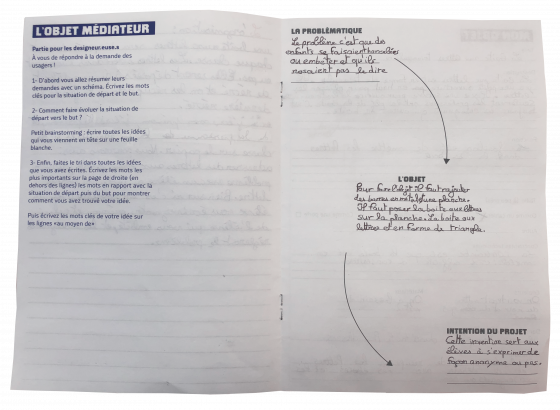 L'OBJET MÉDIATEUR
Partis pour les designeur.euse.s
À vous de répondre à la demande des
usagers !
1- D'abord vous allez résumer leurs
demandes avec un schéma. Écrivez les mots
clés pour la situation de départ et le but.
2- Comment faire évoluer la situation de
départ vers le but ?
Petit brainstorming : écrire toutes les idées
qui vous viennent en tête sur une feuille
blanche.
3- Enfin, faites le tri dans toutes les idées
que vous avez écrites. Écrivez les mots les
plus importants sur la page de droite (en
dehors des lignes) les mots en rapport avec la
situation de départ puis du but pour montrer
comment vous avez trouvé votre idée.
Puis écrivez les mots clés de votre idée sur
les lignes «au moyen de»
LA PROBLÉMATIQUE
Le problème c'est que des
enfants se faisaient harceler
ou embêter et qu'ils
nosaient pas le dire
L'OBJET
Pour l'objet il faut rajouter
des barres en métal d'une planche.
Il faut poser la boite aux lettres
sur la planche. La boite aux
lettres et en forme de triangle.
INTENTION DU PROJET
Cette invention sert aux
élèves à s'exprimer de
façon anonyme ou pas.